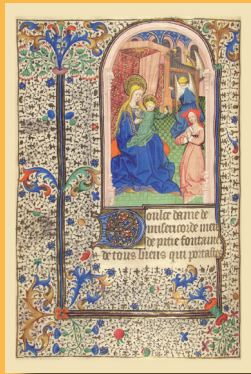 Doulce dame de
misericorde mere
de pitie fontaine
de tous biens qui portast